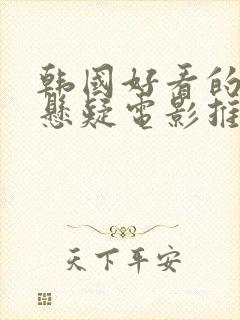 韩国好看的
悬疑电影推
天下平安